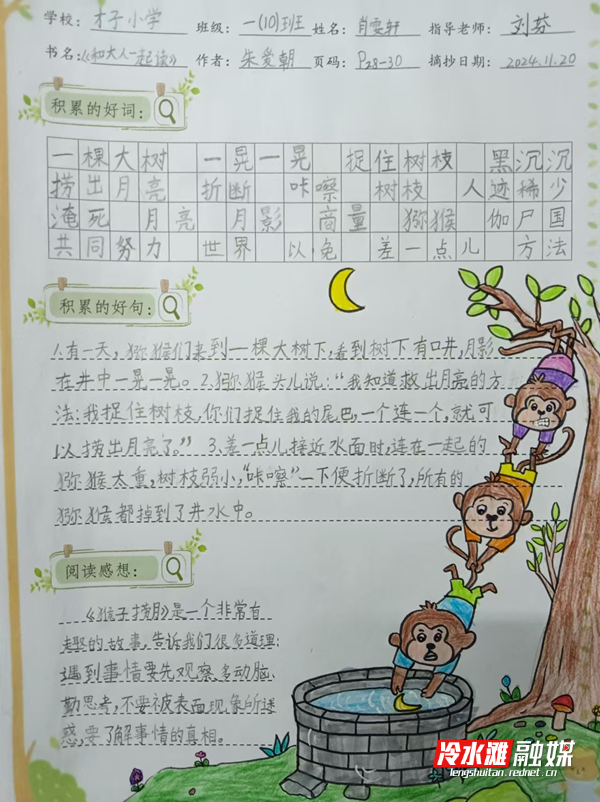 学校: 才子小学 班级: 一(10)班 姓名: 肖雯轩 指导老师: 刘芬
书名:《和大人一起读》 作者: 朱爱朝 页码: P28-30 摘抄日期: 2024.11.20
积累的好词:
一棵大树 一晃一晃 捉住树枝 黑沉沉
捞出月亮 折断 咔嚓 树枝 人迹稀少
淹死 月亮 月影 商量 猕猴 伽尸国
共同努力 世界 以免 差一点儿 方法
积累的好句:
1.有一天，猕猴们来到一棵大树下，看到树下有口井，月影
在井中一晃一晃。2.猕猴头儿说：“我知道救出月亮的方
法：我捉住树枝，你们捉住我的尾巴，一个连一个，就可
以捞出月亮了。” 3.差一点儿接近水面时，连在一起的
猕猴太重，树枝弱小，“咔嚓”一下便折断了，所有的
猕猴都掉到了井水中。
阅读感想:
《猴子捞月》是一个非常有
趣的故事，告诉我们很多道理：
遇到事情要先观察，多动脑、
勤思考，不要被表面现象所迷
惑，要了解事情的真相。
冷水滩融媒
lengshuitan.rednet.cn